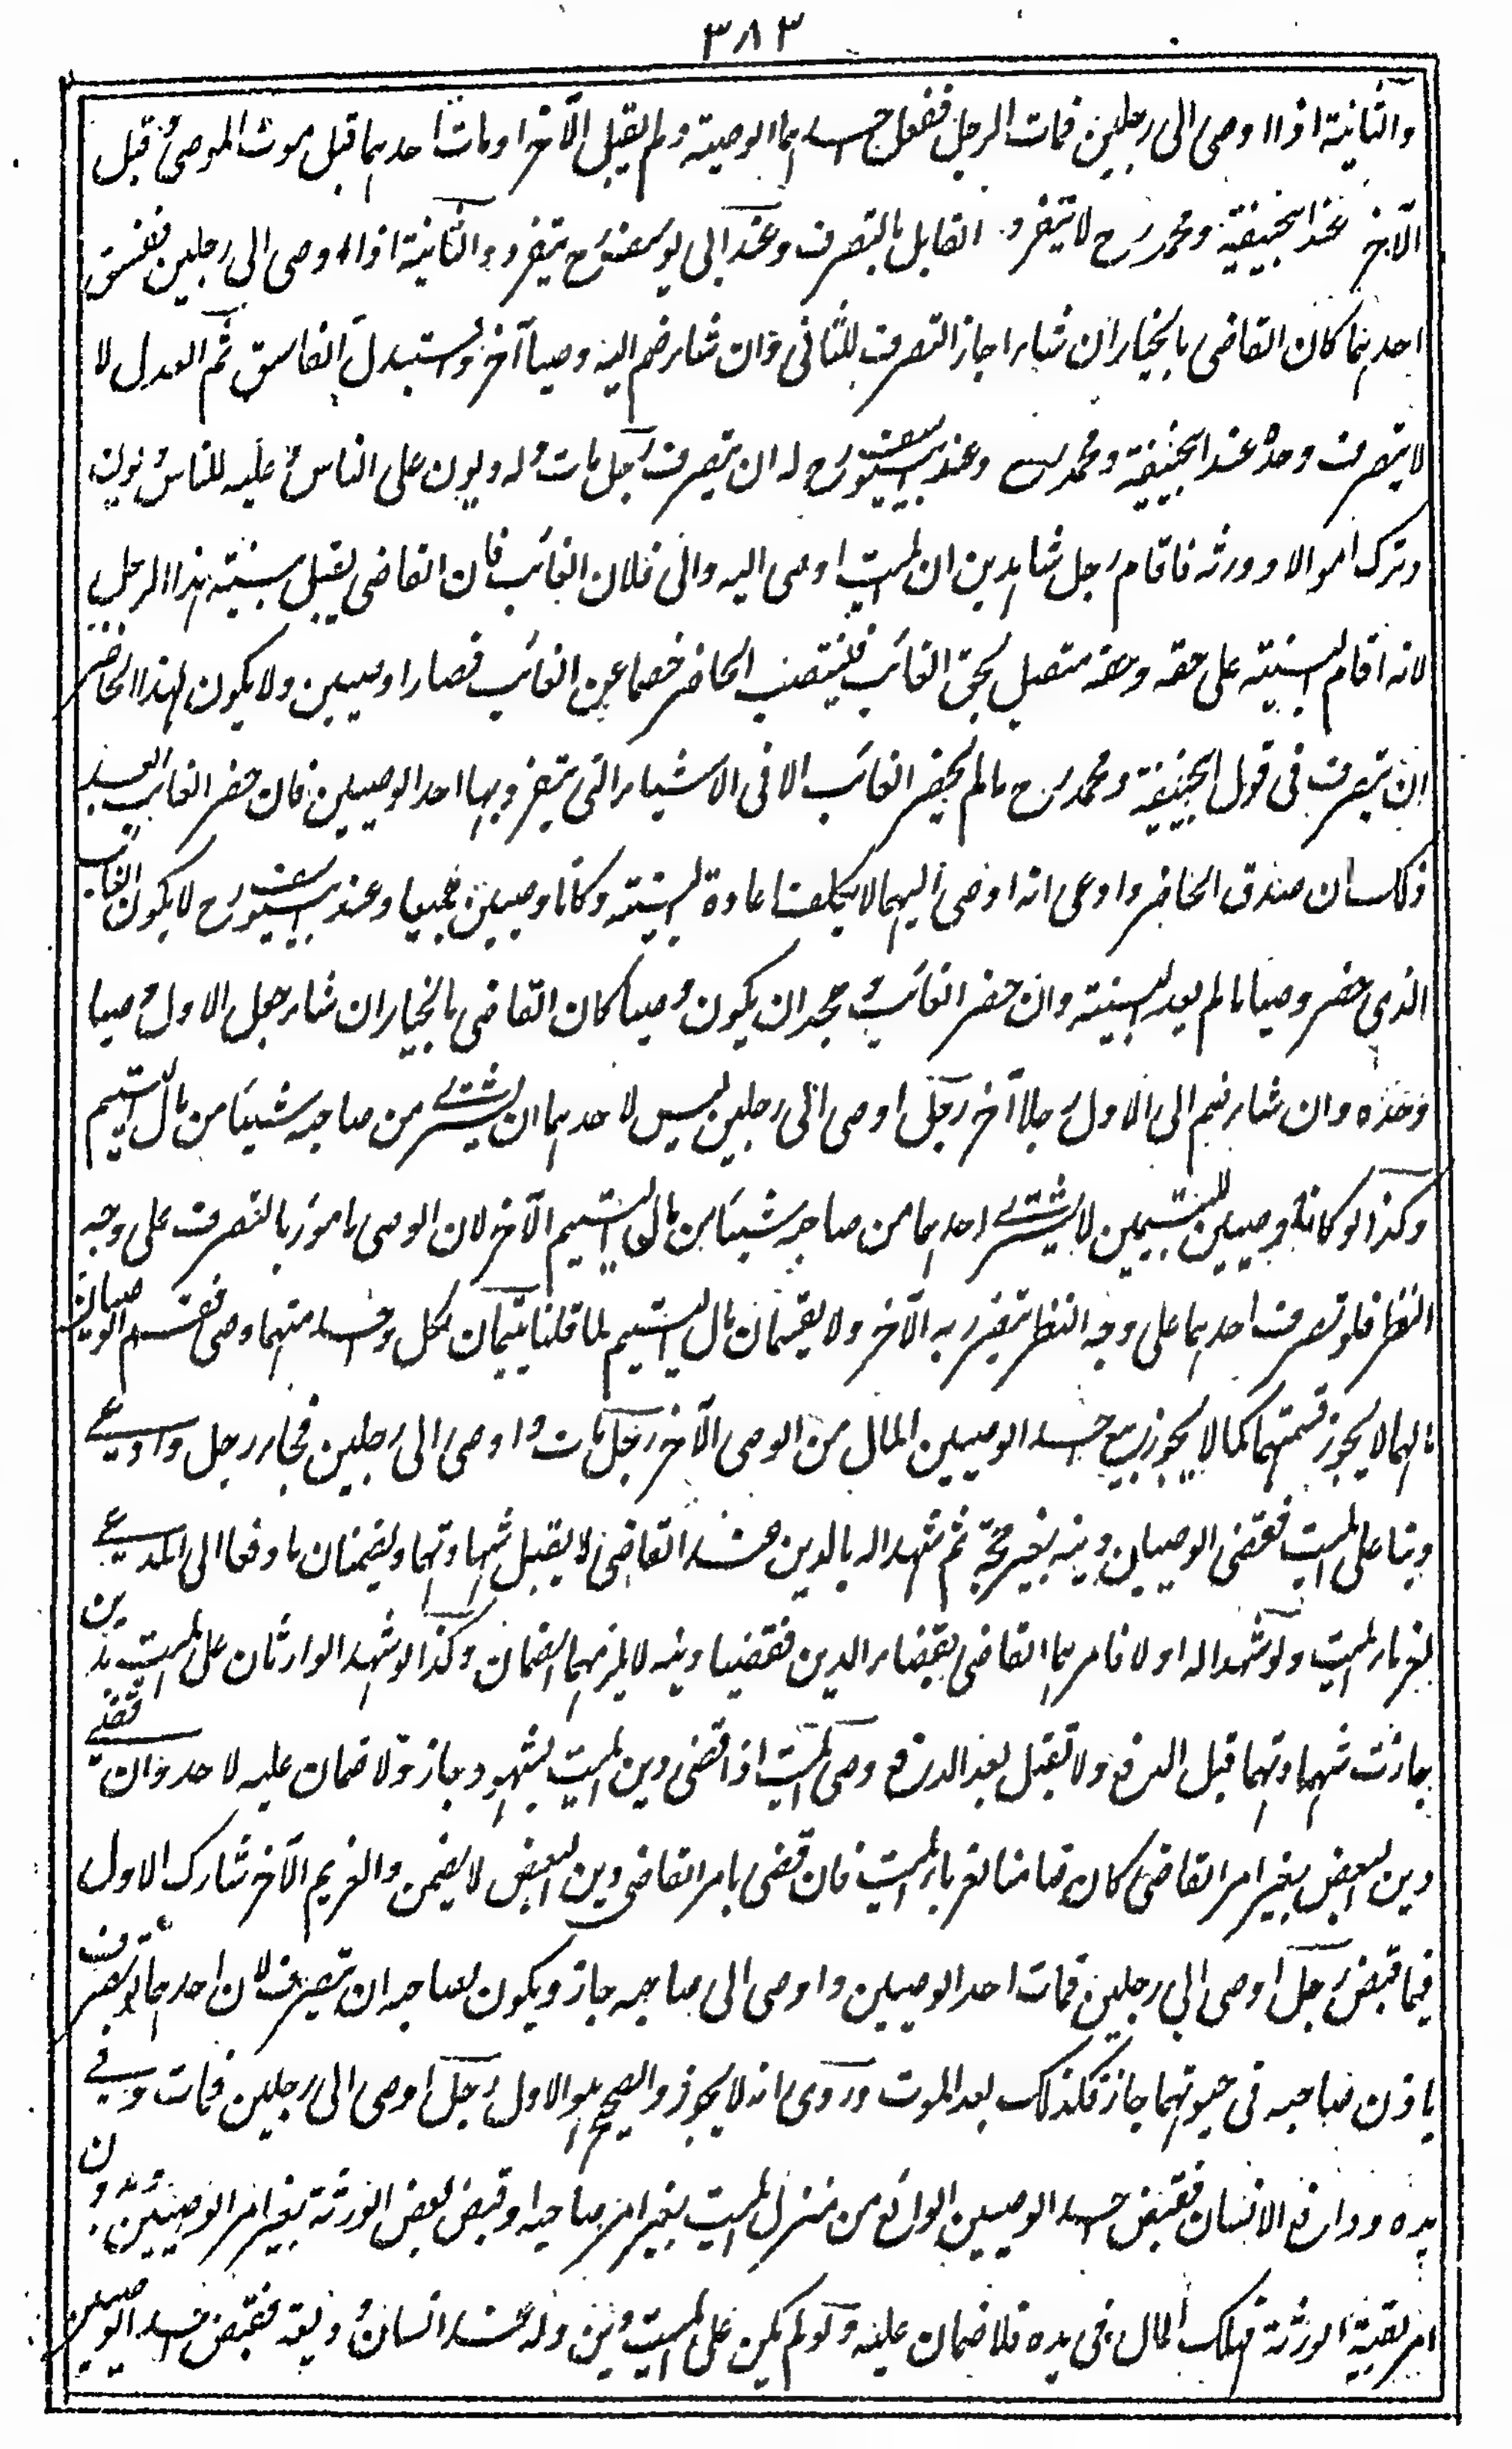 ٣٨٣
والثانية اذا اوصى الى رجلين فمات الرجل فقبل احدهما الوصية ولم يقبل الآخر او مات احدهما قبل موت الموصى وقبل
الآخر عند ابيحنيفة ومحمد رح لا يتفرد القابل بالتصرف وعند ابى يوسف رح يتفرد والثانية اذا اوصى الى رجلين ففسق
احدهما كان القاضى بالخيار ان شاء اجاز التصرف للثانى وان شاء ضم اليه وصيا آخر واستبدل الفاسق ثم العدل لا
لا يتصرف وحده عند ابيحنيفة ومحمد رح وعند ابيوسف رح له ان يتصرف رجل مات وله ديون على الناس وعليه للناس ديون
وترك اموالا وورثة فاقام رجل شاهدين ان الميت اوصى اليه والى فلان الغائب فان القاضى يقبل بينة هذا الرجل
لانه اقام البينة على حقه وحقه متصل بحق الغائب فينتصب الحاضر خصما عن الغائب فصارا وصيين ولا يكون لهذا الحاضر
ان يتصرف فى قول ابيحنيفة ومحمد رح ما لم يحضر الغائب الا فى الاشياء التى يتفرد بها احد الوصيين فان حضر الغائب بعد
ذلك ان صدق الحاضر وادعى انه اوصى اليهما لا يكلف اعادة البينة وكانا وصيين جميعا وعند ابيوسف رح لا يكون الغائب
الذى حضر وصيا ما لم يعد البينة وان حضر الغائب وجحد ان يكون وصيا كان القاضى بالخيار ان شاء جعل الاول وصيا
وحده وان شاء ضم الى الاول رجلا آخر رجل اوصى الى رجلين ليس لاحدهما ان يشترى من صاحبه شيئا من مال اليتيم
وكذا لو كانا وصيين لليتيمين لا يشترى احدهما من صاحبه شيئا من مال اليتيم الآخر لان الوصى مامور بالتصرف على وجه
النظر فلو تصرف احدهما على وجه النظر يتضرر به الآخر ولا يقسمان مال اليتيم لما قلنا يتيمان لكل واحد منهما وصى فقسم الوصيان
مالهما لا يجوز قسمتهما كما لا يجوز بيع احد الوصيين المال من الوصى الآخر رجل مات واوصى الى رجلين فجاء رجل وادعى
دينا على الميت فقضى الوصيان دينه بغير حجة ثم شهدا له بالدين عند القاضى لا يقبل شهادتهما ويضمنان ما دفعا الى المدعى
لغرماء الميت ولو شهدا له اولا فامرهما القاضى بقضاء الدين فقضيا دينه لا يلزمهما الضمان وكذا لو شهد الوارثان على الميت بدين
جازت شهادتهما قبل الدفع ولا تقبل بعد الدفع وصى الميت اذا قضى دين الميت بشهود جاز ولا ضمان عليه لاحد وان قضى
دين البعض بغير امر القاضى كان ضامنا لغرماء الميت فان قضى بامر القاضى دين البعض لا يضمن والغريم الآخر شارك الاول
فيما قبض رجل اوصى الى رجلين فمات احد الوصيين واوصى الى صاحبه جاز ويكون لصاحبه ان يتصرف لان احدهما لو تصرف
باذن صاحبه فى حيوتهما جاز فكذلك بعد الموت وروى انه لا يجوز والصحيح هو الاول رجل اوصى الى رجلين فمات وفى
يده ودائع لانسان فقبض احد الوصيين الودائع من منزل الميت بغير امر صاحبه او قبض بعض الورثة بغير امر الوصيين بدون
امر بقية الورثة فهلك المال فى يده فلا ضمان عليه ولو لم يكن على الميت دين وله عند انسان وديعة فقبض احد الوصيين